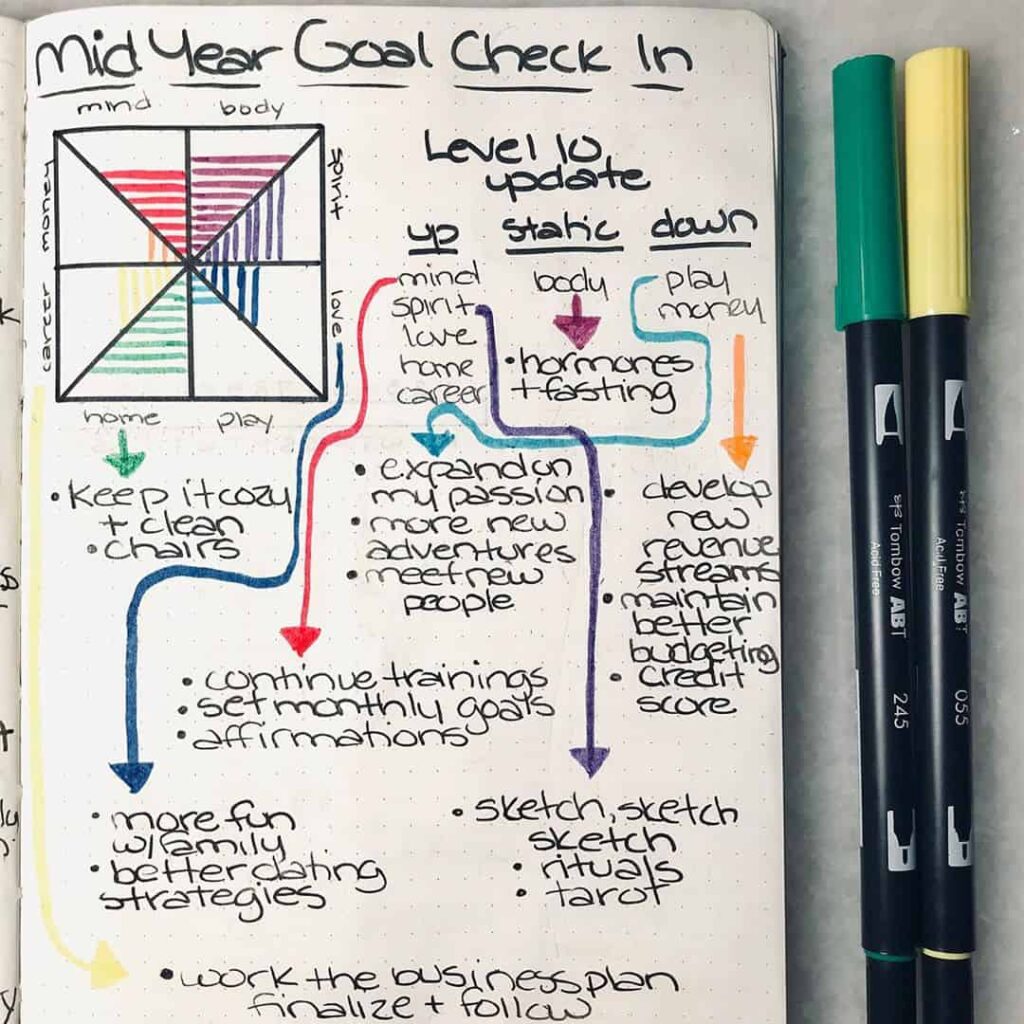 Mid Year Goal Check In
mind
body
spirit
love
play
home
career
money
Level 10
update
up
static
down
mind
spirit
love
home
career
body
play
money
• hormones
+ fasting
• keep it cozy
+ clean
• chairs
• expand on
my passion
• more new
adventures
• meet new
people
• develop
new
revenue
streams
• maintain
better
budgeting
• credit
score
• continue trainings
• set monthly goals
• affirmations
• more fun
w/family
• better dating
strategies
• sketch, sketch
sketch
• rituals
• tarot
• work the business plan
finalize + follow
Tombow ABT
Acid Free
245
Tombow ABT
Acid Free
055